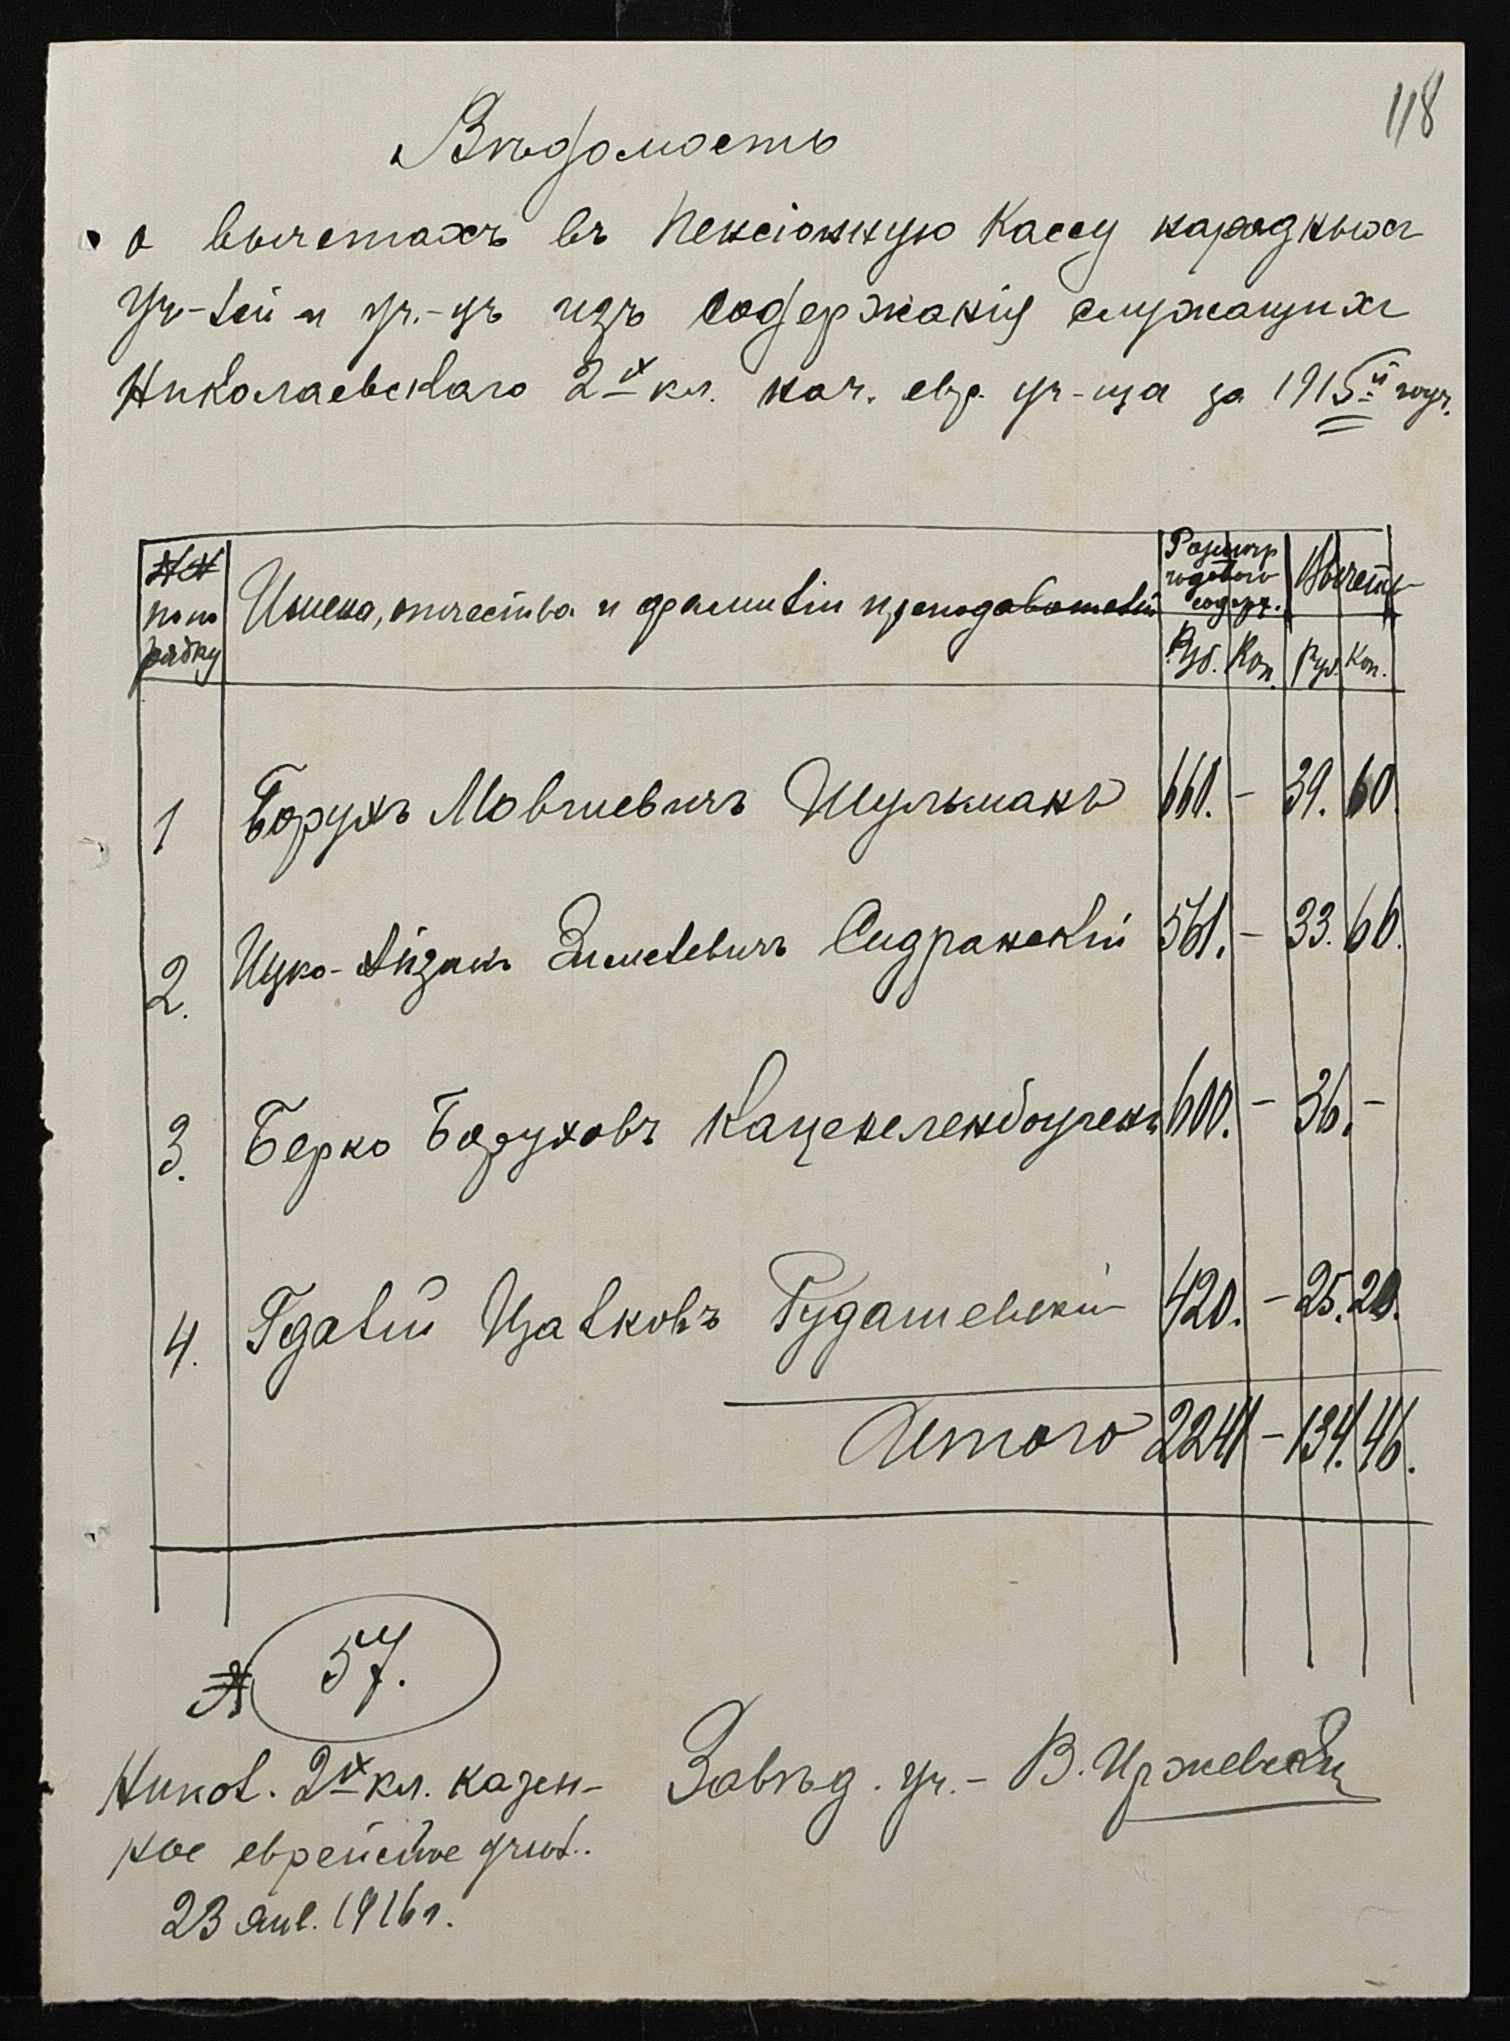 118
Вѣдомость
о вычетахъ въ Пенсіонную Кассу народныхъ
уч-лей и уч.-цъ изъ содержанія служащихъ
Николаевскаго 2х кл. нач. евр. уч-ща за 1915й годъ.
№№ по по рядку
Имена, отчества и фамиліи преподавателей
Размѣр годового содерж.
Вычеты
Руб. Коп. Руб. Коп.
1 Борухъ Мовшевичъ Шульманъ 660. – 39. 60
2. Ицко-Айзикъ Зимелевичъ Сидранскій 561. – 33. 66.
3. Берко Боруховъ Каценеленбоугенъ 600. – 36. –
4. Гдалій Цалковъ Рудашевскій 420. – 25. 20.
Итого 2241 – 134. 46.
№ 57.
Никол. 2х кл. казен-
ное еврейское учил.
23 янв. 1916 г.
Завѣд. уч.– В.